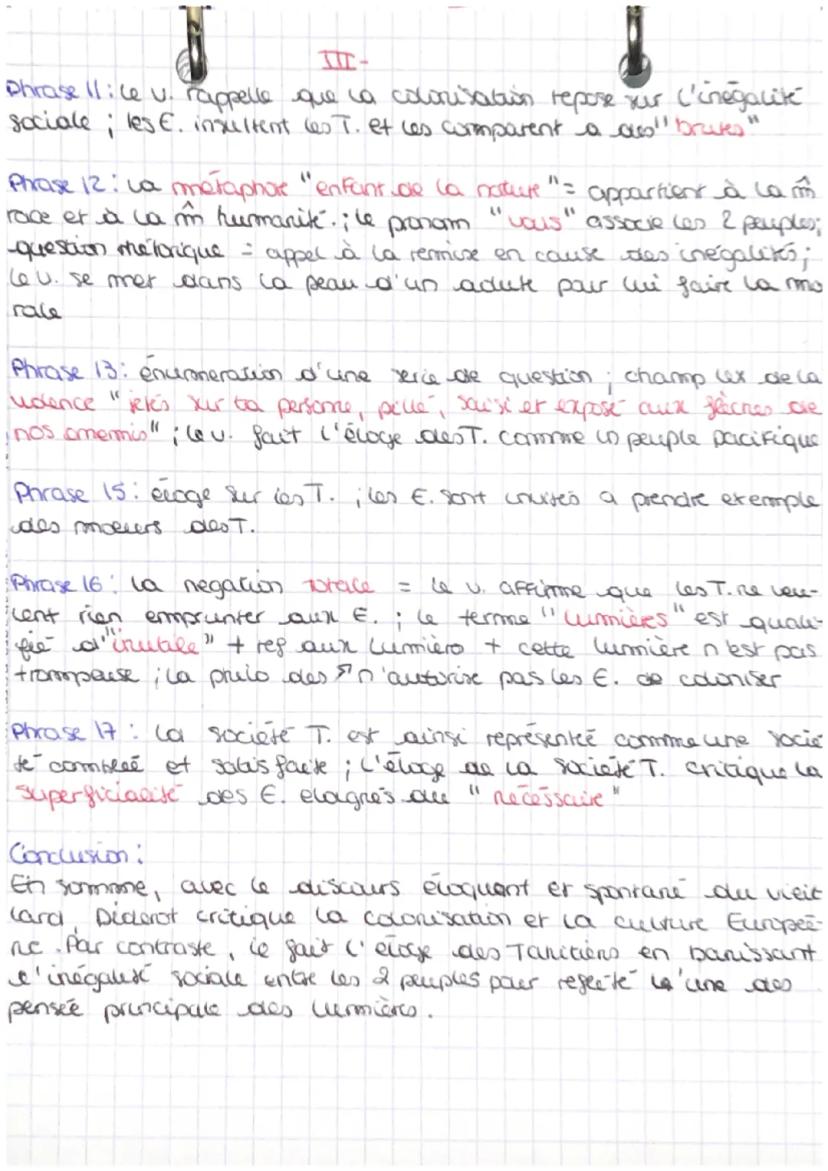 III-
Phrase 11 : le v. rappelle que la colonisation repose sur l'inégalité
sociale ; les E. insultent les T. et les comparent a des "brutes"
Phrase 12 : la métaphore "enfant de la nature" = appartient à la m̂
race et à la m̂ humanité. ; le pronom "vous" associe les 2 peuples;
question rhétorique = appel à la remise en cause des inégalités ;
le v. se met dans la peau d'un adulte pour lui faire la mo
rale
Phrase 13 : énumération d'une serie de question ; champ lex de la
violence "jetés sur ta personne, pillé, saisi et exposé aux flèches de
nos ennemis" ; le v. fait l'éloge des T. comme un peuple pacifique
Phrase 15 : éloge sur les T. ; les E. sont invités a prendre exemple
des moeurs des T.
Phrase 16 : la negation totale = le v. affirme que les T. ne veu-
lent rien emprunter aux E. ; le terme "lumières" est quali-
fié d'"inutile" + ref aux Lumière + cette lumière n'est pas
trompeuse ; la philo des n'autorise pas les E. de coloniser
Phrase 17 : la société T. est ainsi représenté comme une socié
té comblée et satisfaite ; l'éloge de la société T. critique la
superficialité des E. elognés du "necéssaire"
Conclusion :
En somme, avec le discours éloquent et spontané du vieil
lard, Diderot critique la colonisation et la culture Europée-
ne. Par contraste, il fait l'éloge des Tahitiens en banissant
l'inégalité sociale entre les 2 peuples pour refleté l'une des
pensée principale des lumières.